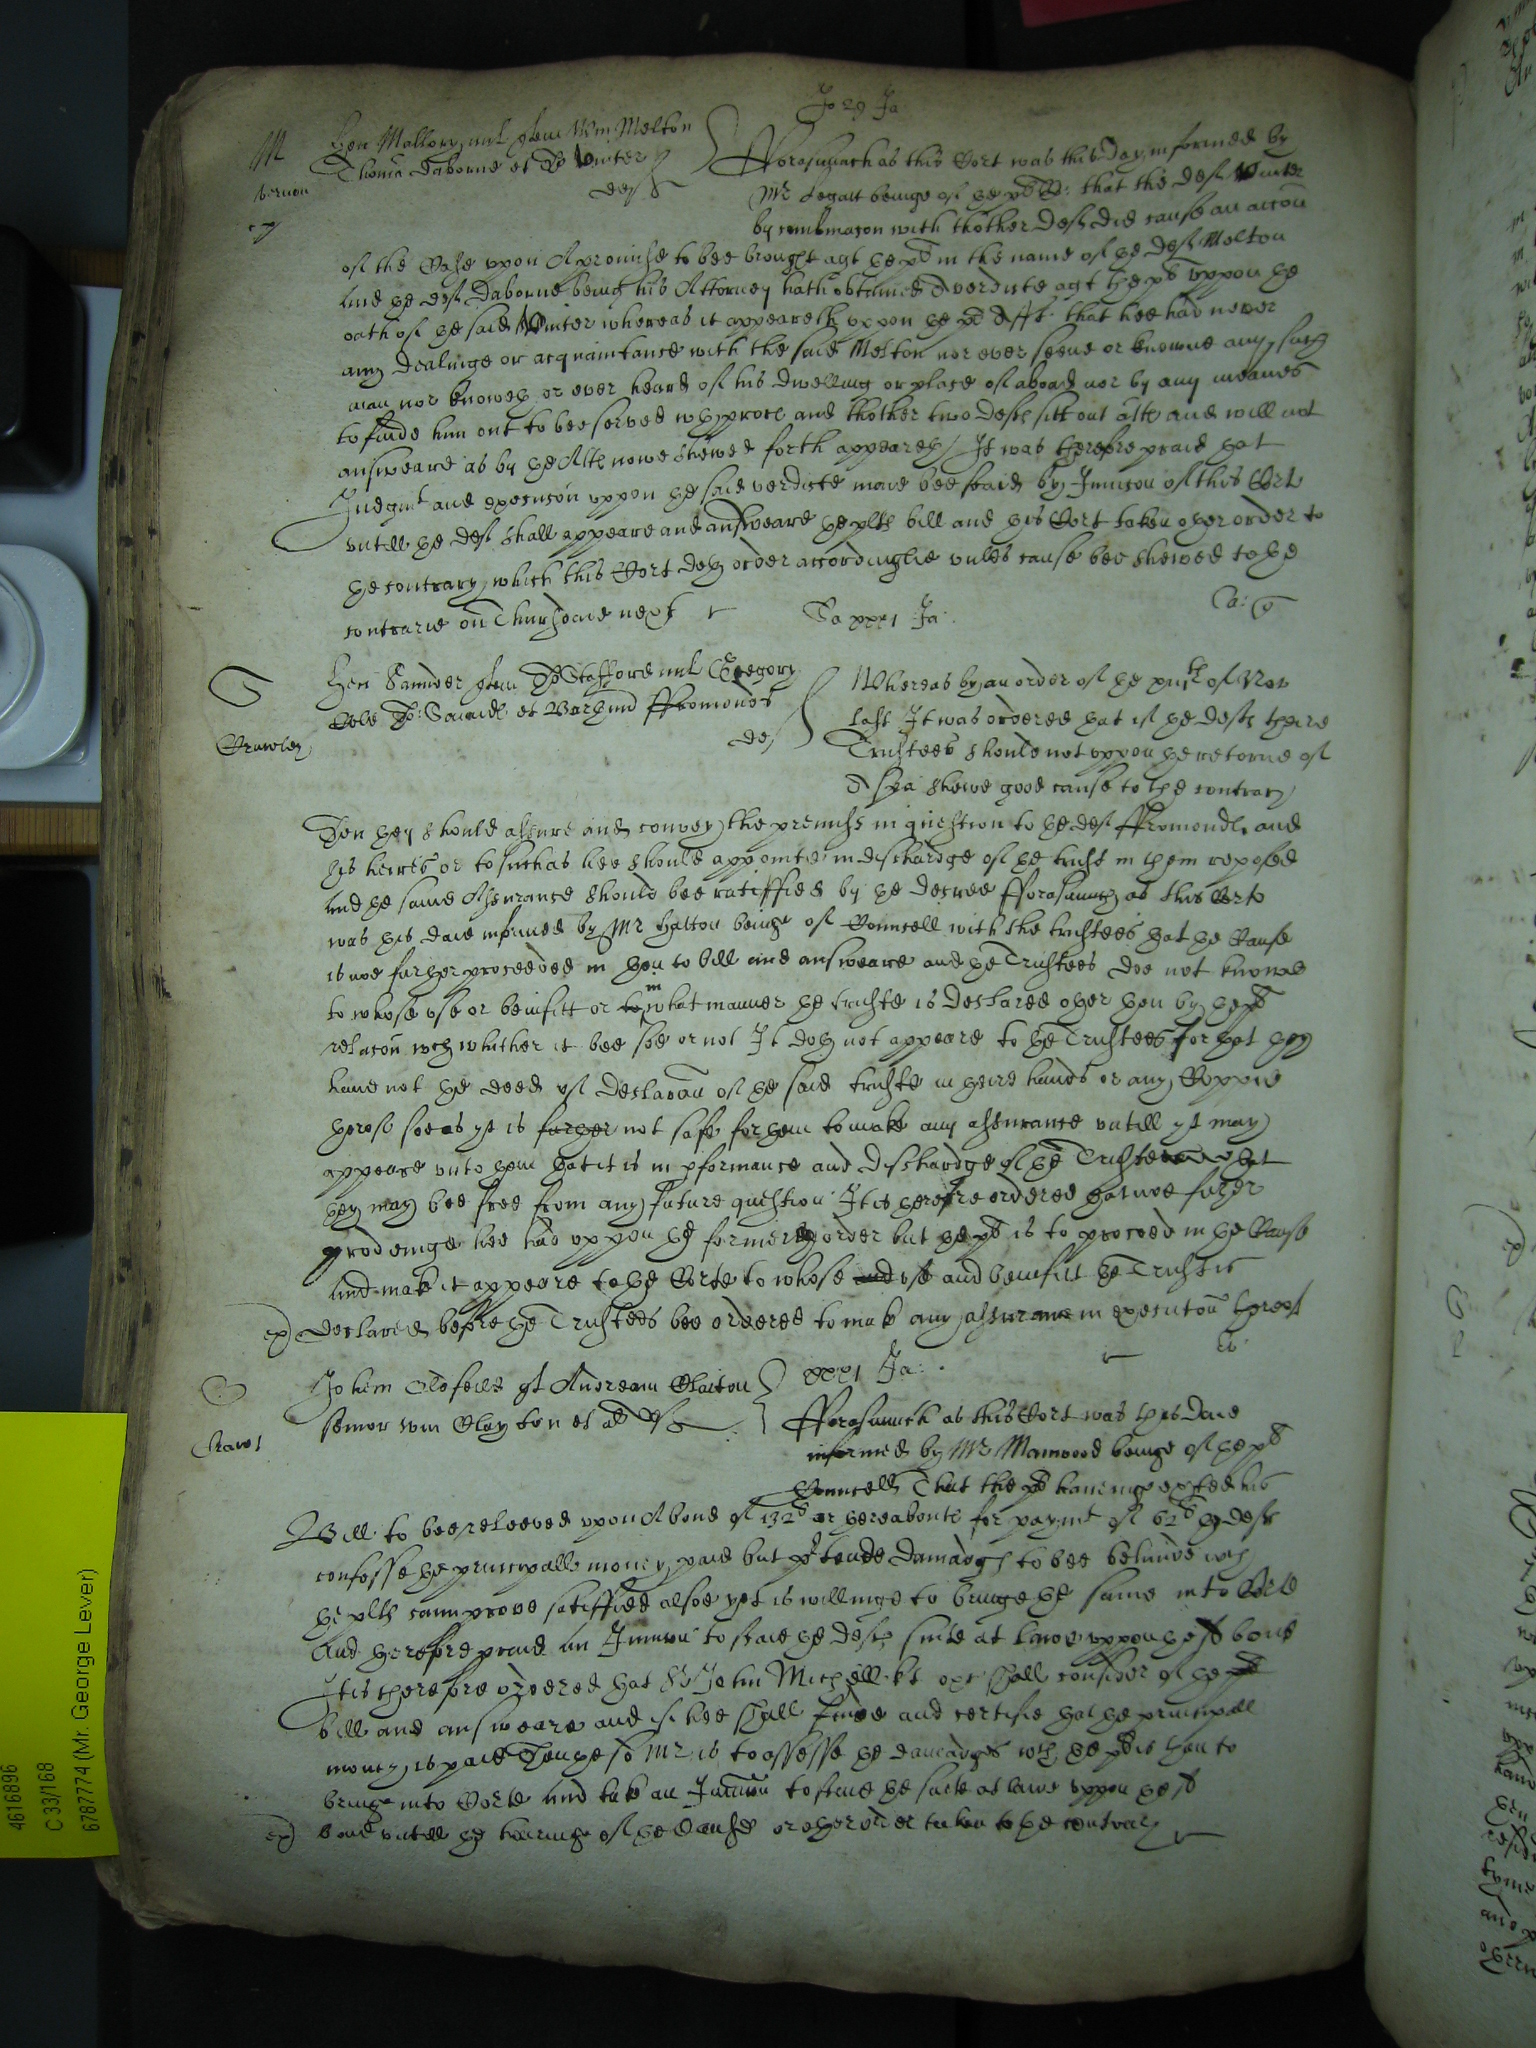 Jo 29 Ja
M
Hen Mallory mil quer Wm Melton
Thoma Daborne et Winter
def
Vernon
Forasmuch as this Cort was this day informed by
Mr Legatt beinge of he plts that the def Winter
by combinacon with thother defs did cause an accon
of the Case uppon A promise to bee brought agt he plt in the name of he def Melton
and he def Daborne being his Attorney hath obtained A verdicte agt he plt uppon he
oath of he said Winter whereas it appeareth uppon he plts Afft that hee had never
any dealinge or acquaintance with the said Melton nor ever seene or knowne any such
man nor knoweh or ever heard of his dwelling or place of aboad nor by any meanes
to finde him out to bee served wh proces and thother two defs sitt out Atts and will not
answeare as by he Atts nowe shewed forth appeareh It was herefore praied hat
Judgmt and execucon uppon he said verdicte maie bee staied by Iniuncon of this Cort
untill he defs shall appeare and answeare he plts bill and his Cort taken oher order to
he contrary, which this Cort doh order accordinglie unles cause bee shewed to he
contrarie on Thursdaie next
Sa xxxi Ja:
G
Hen Saunder quer Stafford mil Gregory
Cole Saviell et Barhm ffromonds
def
Crawley
Whereas by an order of he of Nov
last It was ordered hat if he defs theire
Trustees should not uppon he retorne of
A spa shewe good cause to the contrary
hen hey should assure and convey the premiss in question to he def ffromonds and
his heires or to such as hee should appointe in dischardge of he trust in them reposed
and he same Assurance should bee ratiffied by he decree fforasmuch as this Corte
was his daie informed by Mr Hatton beinge of Councell with the trustees hat he Cause
is noe furher proceeded in hen to bill and answeare and he Trustees doe not knowe
to whose use or benifitt or to in what manner he truste is declared oher hen by he plts
relacon wch whither it bee soe or not It doh not appeare to he Trustees for hat hey
have not he deed of declaracon of he said truste in heire hands or any Coppie
hereof soe as yt is furher not safe for hem to make any assurance untill yt may
appeare unto hem hat it is in pformance and dischardge of he Truste and hat
hey may bee free from any future question It is herefore ordered hat noe furher
prodeinge bee had uppon he former order but he plt is to proceed in he Cause
and make it appeare to he Corte to whose and use and benifitt he Trust is
ex declared before he Trustees bee ordered to make any assurance in execucon hereof
Johem Oldfeild qt Andream Claiton
senior Wm Clayton et al defs
xxxi Ja:
fforasmuch as this Cort was this daie
informed by Mr Manwood beinge of he plts
Councell That the plt haveing exhited his
Bill to bee releeved uppon A bond of 132 or hereabouts for paymt of 62 he defs
confesse he principall money paid but ptende damadgs to bee behinde wch
he plts cann prove satiffied alsoe yet is willinge to bringe he same into Corte
And herefore praied an Iniuncon to staie he defs suite at lawe uppon he sd bond
It is therefore ordered hat Sr John Michell kt shall consider of he
bill and answeare and if hee shall finde and certifie hat he principall
money is paid Then he sd Mr is to assesse he damadges wch he plt is hen to
bringe into Corte and take an Iniuncon to staie he suite at lawe uppon he sd
ex bond untill he hearinge of he Cause or oher order taken to he contrary
4616896
C 33/168
6787774 (Mr. George Lever)